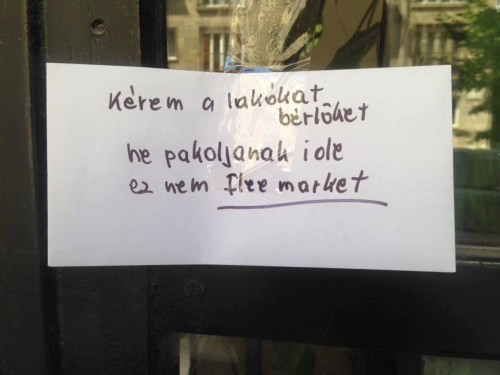 Kérem a lakókat
bérlőket
ne pakoljanak ide
ez nem flee market